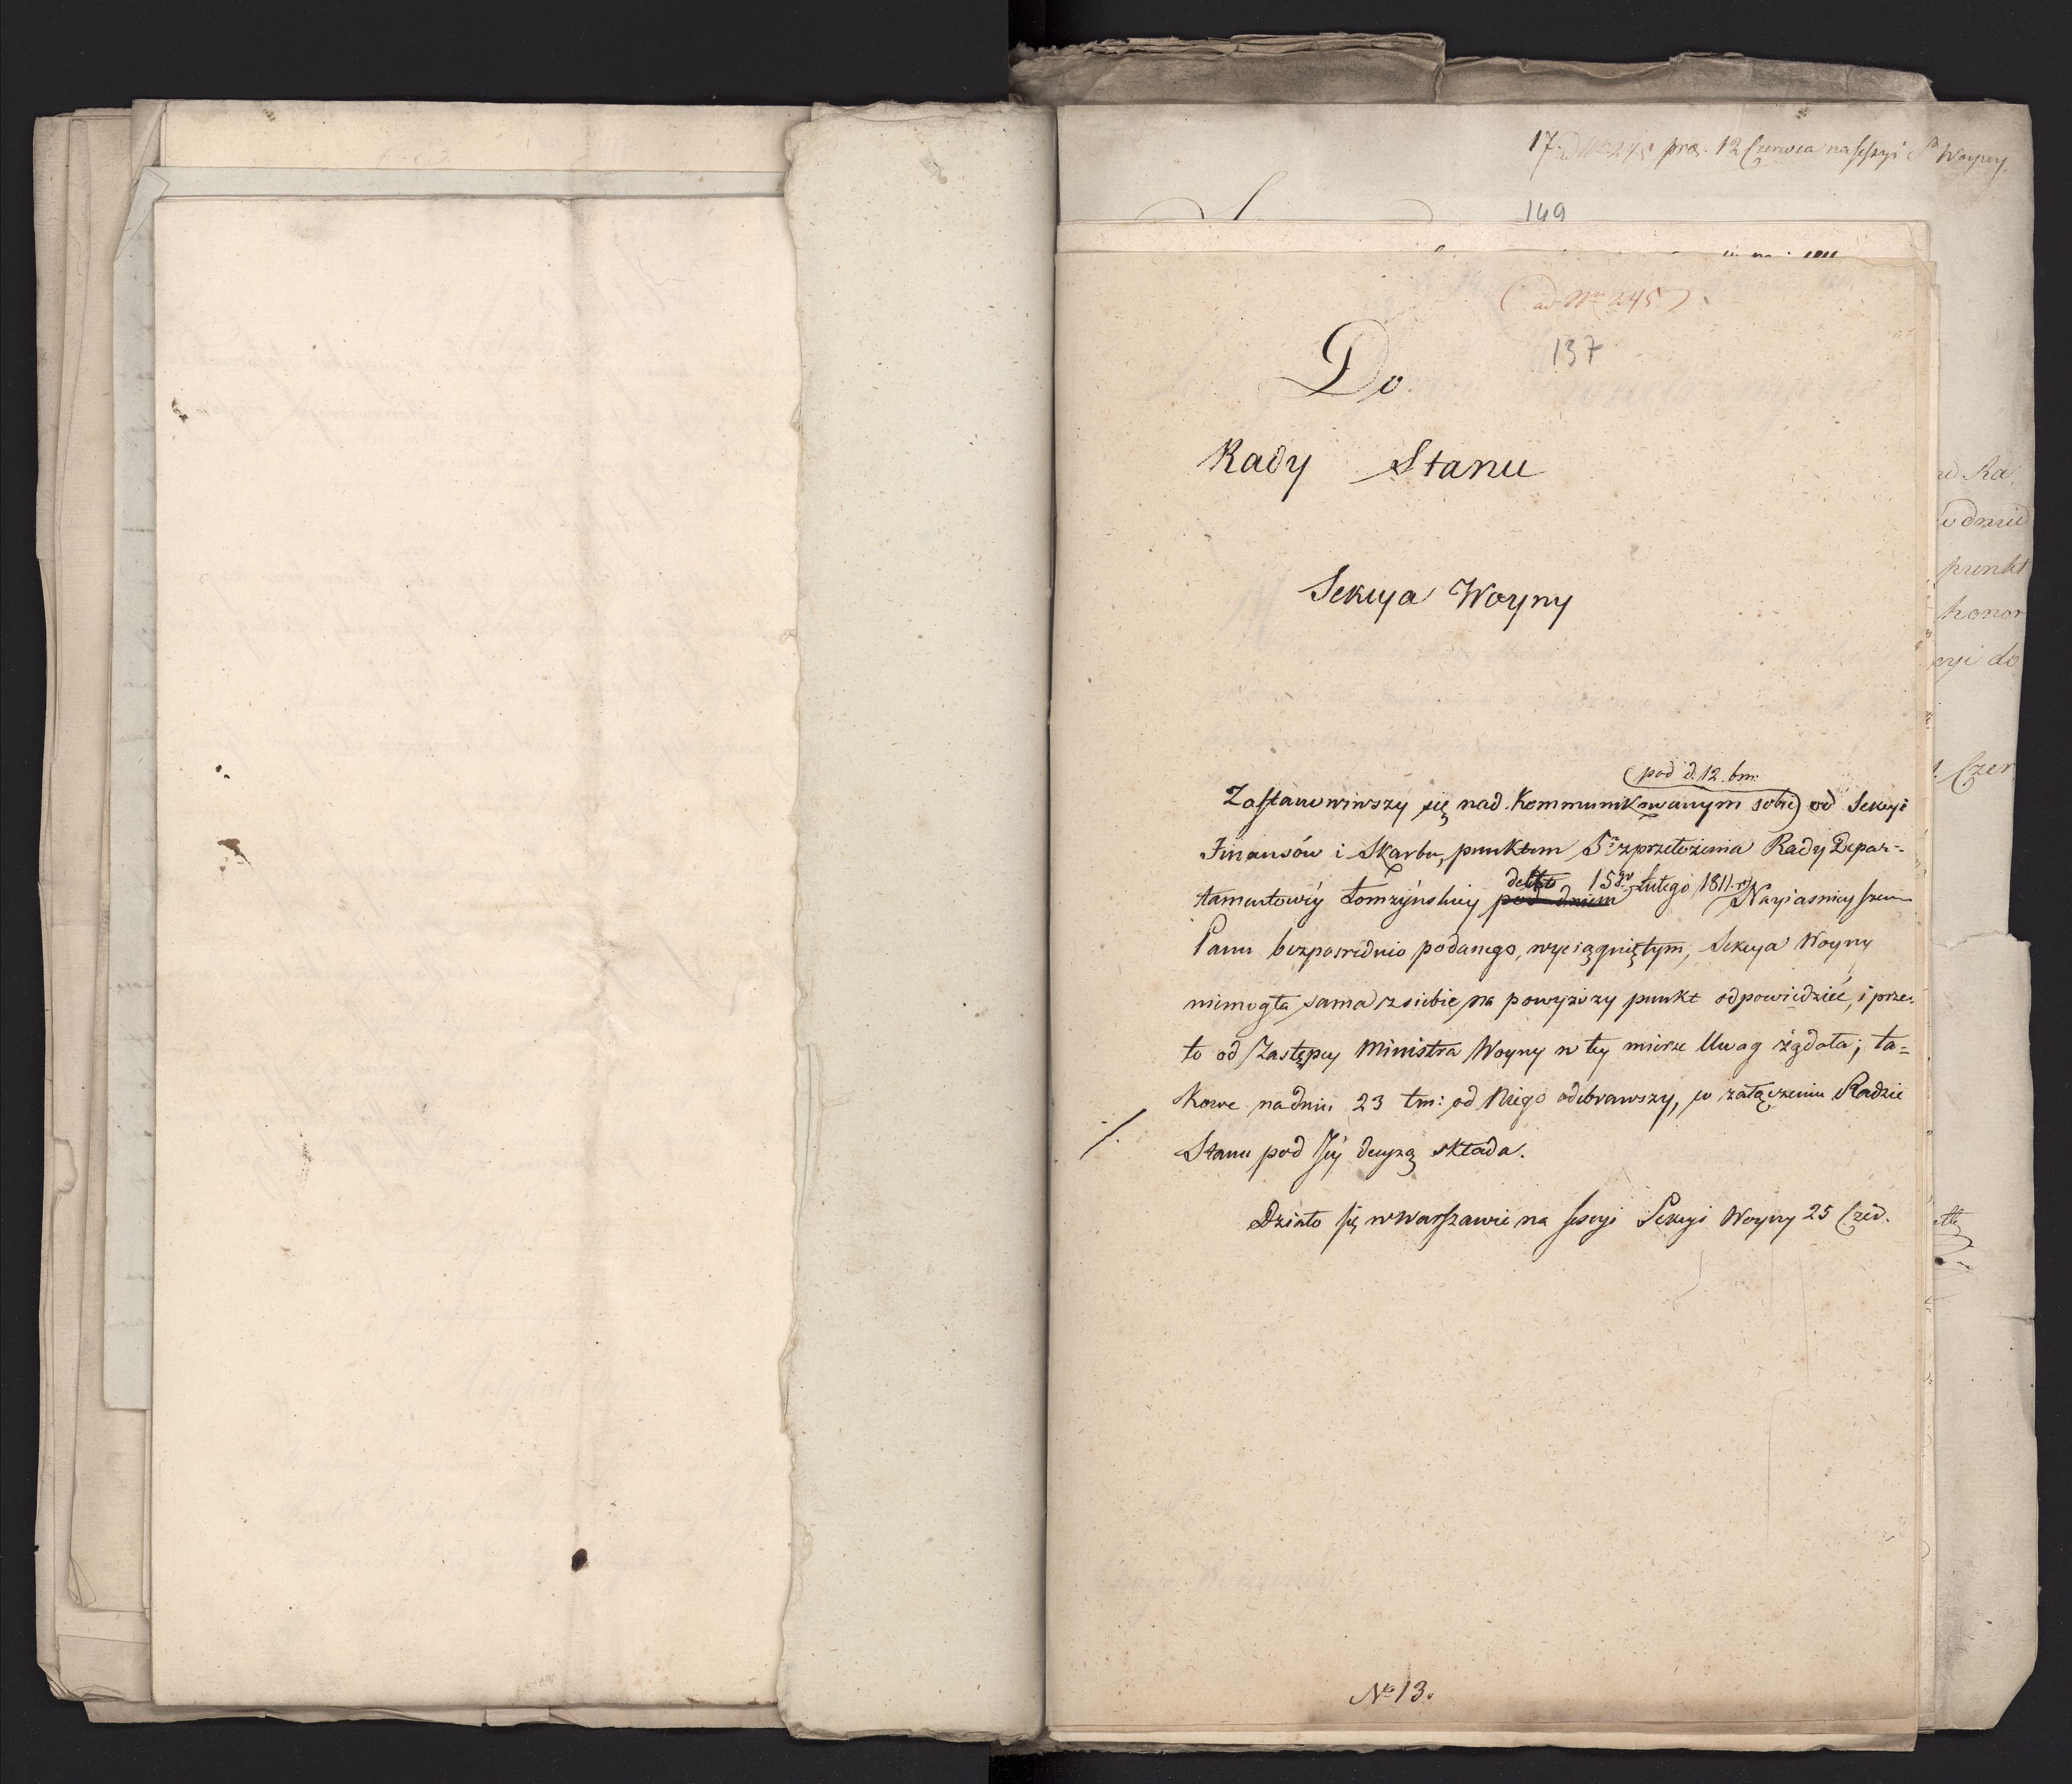 17. ad Nr 245 prez. 12 Czerwca na sessyi Woyny.
149
(ad Nr 245.)
137
Do
Rady Stanu
Sekcya Woyny
(pod d. 12. bm:
Zastanowiwszy się nad Kommunikowanym sobie) od Sekcyi
Finansów i Skarbu, punktem 5m z przełożenia Rady Depar=
tamentowéy Łomżyńskiey pod dniem detto 15go Lutego 1811. r. Nayiasnieyszemu
Panu bezpośrednio podanego, wyciągniętym, Sekcya Woyny
niemogła sama z siebie na powyższy punkt odpowiedzieć, i prze=
to od Zastępcy Ministra Woyny w tey mierze Uwag żądała; ta=
kowe na dniu 23 tm: od Niego odebrawszy, w załączeniu Radzie
/.
Stanu pod Jéy decyzą składa.
Działo się w Warszawie na sessyi Sekcyi Woyny 25 Czerw.
No 13.
odmied
punkt
honor
cyi do
Czer